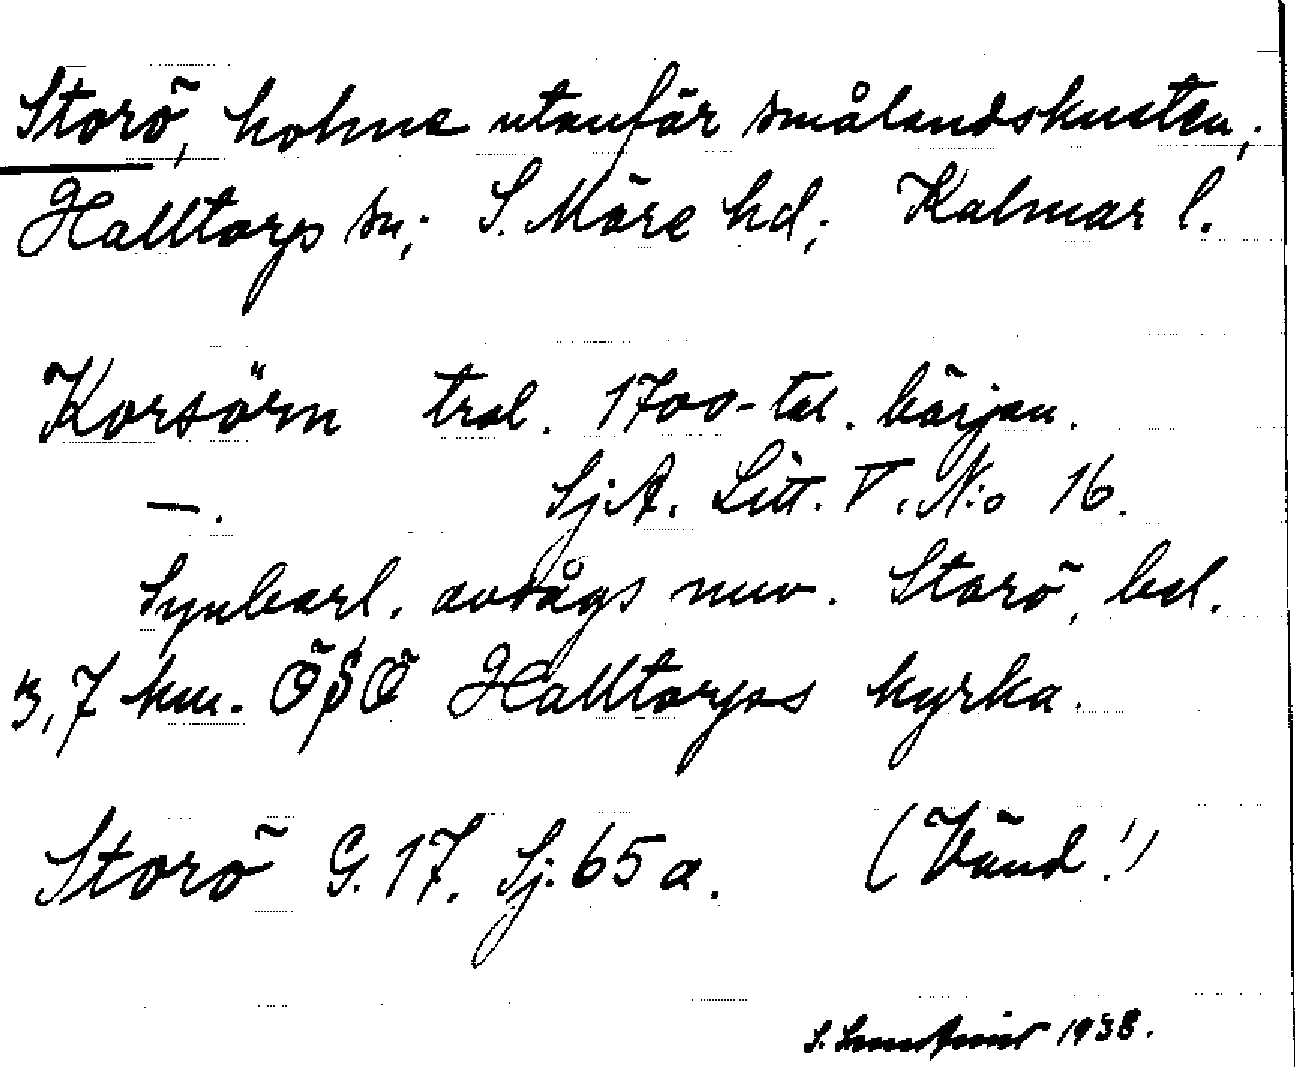 Storö, holme utanför smålandskusten;
Halltorp sn; S. Möre hd; Kalmar l.
Korsörn trol. 1700-tal. början.
—. Sj.A. Litt. V. N:o 16.
Synbarl. avsågs nuv. Storö, bel.
3,7 km. ÖSÖ Halltorps kyrka.
Storö G. 17. Sj. 65 a. (Vänd!)
S. 1938.